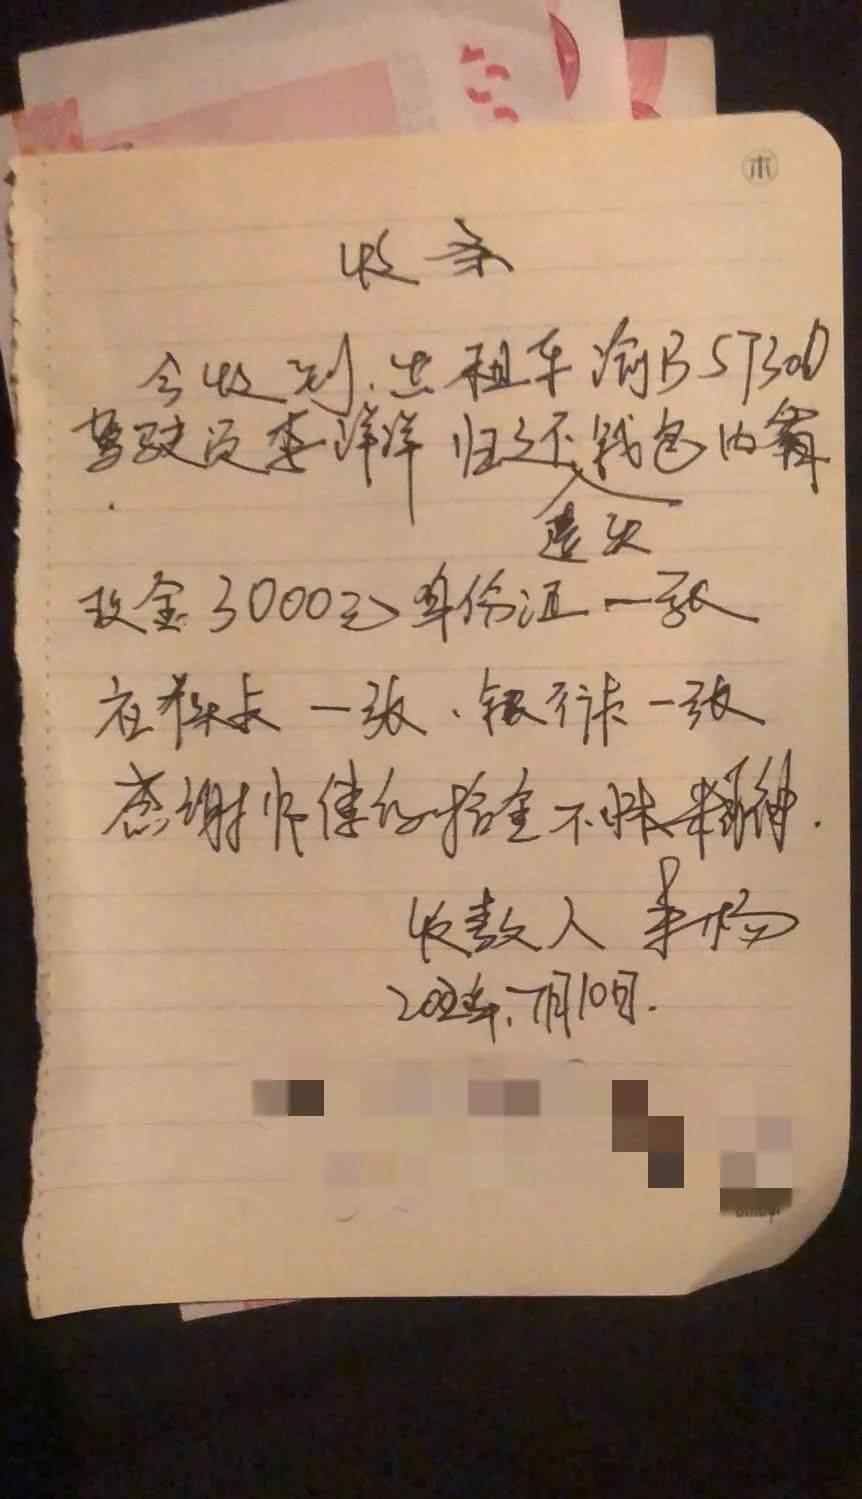 本
收条
今收到、出租车渝B5T300
驾驶员李洋洋归还钱包内有
遗失
现金3000元身份证一张
社保卡一张、银行卡一张
感谢师傅的拾金不昧精神.
收款人 李杨
7月10日.